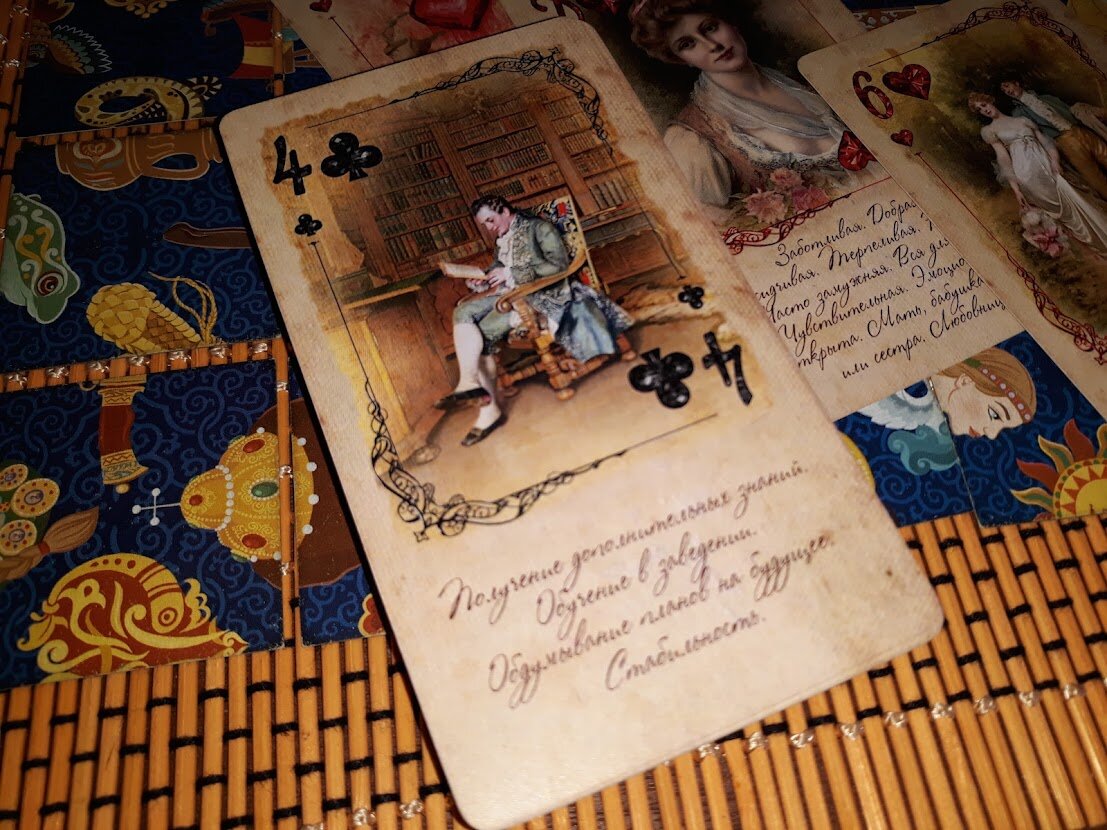 4
Получение дополнительных знаний.
Обучение в заведении.
Обдумывание планов на будущее.
Стабильность.
4
Заботливая.
Терпеливая.
Часто замужняя. Вся для
Чувствительная.
Мать, бабушка
или сестра.
6